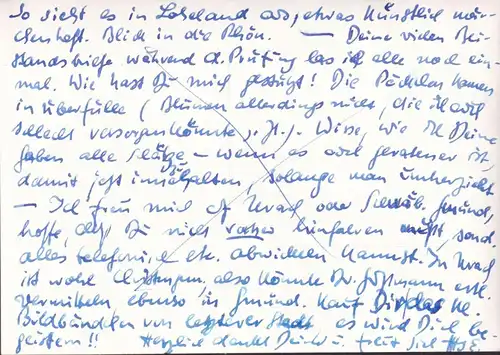 So sieht es in Loheland aus, etwas künstlich mär-
chenhaft. Blick in die Rhön. — Deine vielen Bei-
standsbriefe während d. Prüfung las ich alle noch ein-
mal. Wie hast Du mich gestützt! Die Päckchen kamen
in Überfülle (Blumen allerdings nicht, die ich auch
schlecht versorgen könnte). Wisse, wie ich Deine
Gaben alle schätze – wenn es auch geratener ist,
damit jetzt innezuhalten, solange man umherzieht
— Ich freu mich auf Urach oder Schwäb. Gmünd,
hoffe, daß Du nicht vorher hinfahren mußt, sond.
alles telefonisch etc. abwickeln kannst. In Urach
ist wohl also könnte Dr. evtl.
vermitteln, ebenso in Gmünd. Kauf Dir das kl.
Bildbändchen von letzterer Stadt es wird Dich be-
geistern!! Herzlich dankt Dir u. freut sich